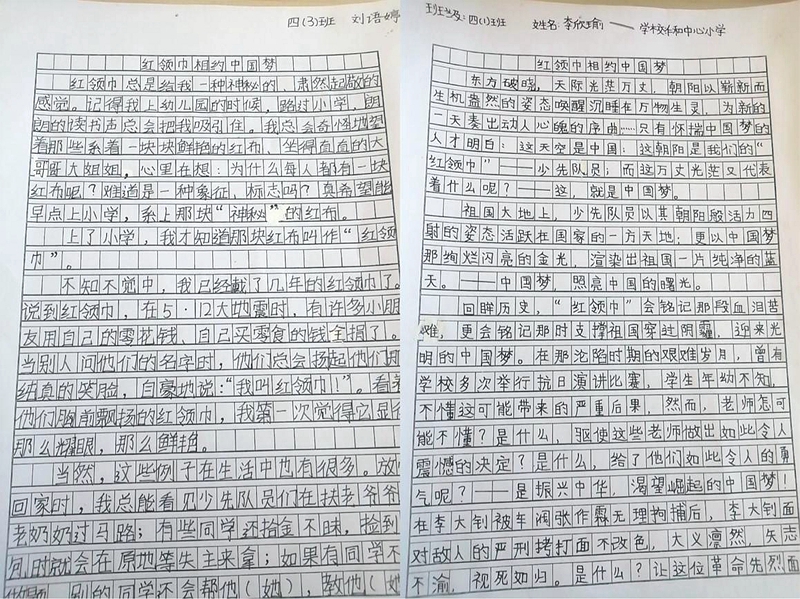 四(3)班 刘语婷
红领巾相约中国梦
红领巾总是给我一种神秘的、肃然起敬的
感觉。记得我上幼儿园的时候，路过小学，朗
朗的读书声总会把我吸引住。我总会奇怪地望
着那些系着一块块鲜艳的红布、坐得直直的大
哥哥大姐姐，心里在想：为什么每人都有一块
红布呢？难道是一种象征、标志吗？真希望能
早点上小学，系上那块“神秘”的红布。
上了小学，我才知道那块红布叫作“红领
巾”。
不知不觉中，我已经戴了几年的红领巾了。
说到红领巾，在5·12大地震时，有许多小朋
友用自己的零花钱、自己买零食的钱全捐了。
当别人问他们的名字时，他们总会扬起他们
纯真的笑脸，自豪地说：“我叫红领巾！”。看着
他们胸前飘扬的红领巾，我第一次觉得它显得
那么耀眼，那么鲜艳。
当然，这些例子在生活中也有很多。放
回家时，我总能看见少先队员们在扶老爷爷
老奶奶过马路；有些同学还拾金不昧，捡到
何时就会在原地等失主来拿；如果有同学不
别的同学还会帮他（她），教他（她
班级：四(1)班 姓名：李欣瑜 —— 学校：仁和中心小学
红领巾相约中国梦
东方破晓，天际光芒万丈，朝阳以崭新而
生机盎然的姿态唤醒沉睡在万物生灵，为新的
一天奏出动人心魄的序曲……只有怀揣中国梦的
人才明白：这天空是中国；这朝阳是我们的“
红领巾”——少先队员；而这万丈光芒又代表
着什么呢？——这，就是中国梦。
祖国大地上，少先队员以其朝阳般活力四
射的姿态活跃在国家的一方天地；更以中国梦
那绚烂闪亮的金光，渲染出祖国一片纯净的蓝
天。——中国梦，照亮中国的曙光。
回眸历史，“红领巾”会铭记那段血泪苦
难，更会铭记那时支撑祖国穿过阴霾，迎来光
明的中国梦。在那沦陷时期的艰难岁月，曾有
学校多次举行抗日演讲比赛，学生年幼不知，
不懂这可能带来的严重后果，然而，老师怎可
能不懂？是什么，驱使这些老师做出如此令人
震憾的决定？是什么，给了他们如此令人的勇
气呢？——是振兴中华，渴望崛起的中国梦！
在李大钊被军阀张作霖无理拘捕后，李大钊面
对敌人的严刑拷打面不改色，大义凛然，矢志
不渝，视死如归。是什么？让这位革命先烈面